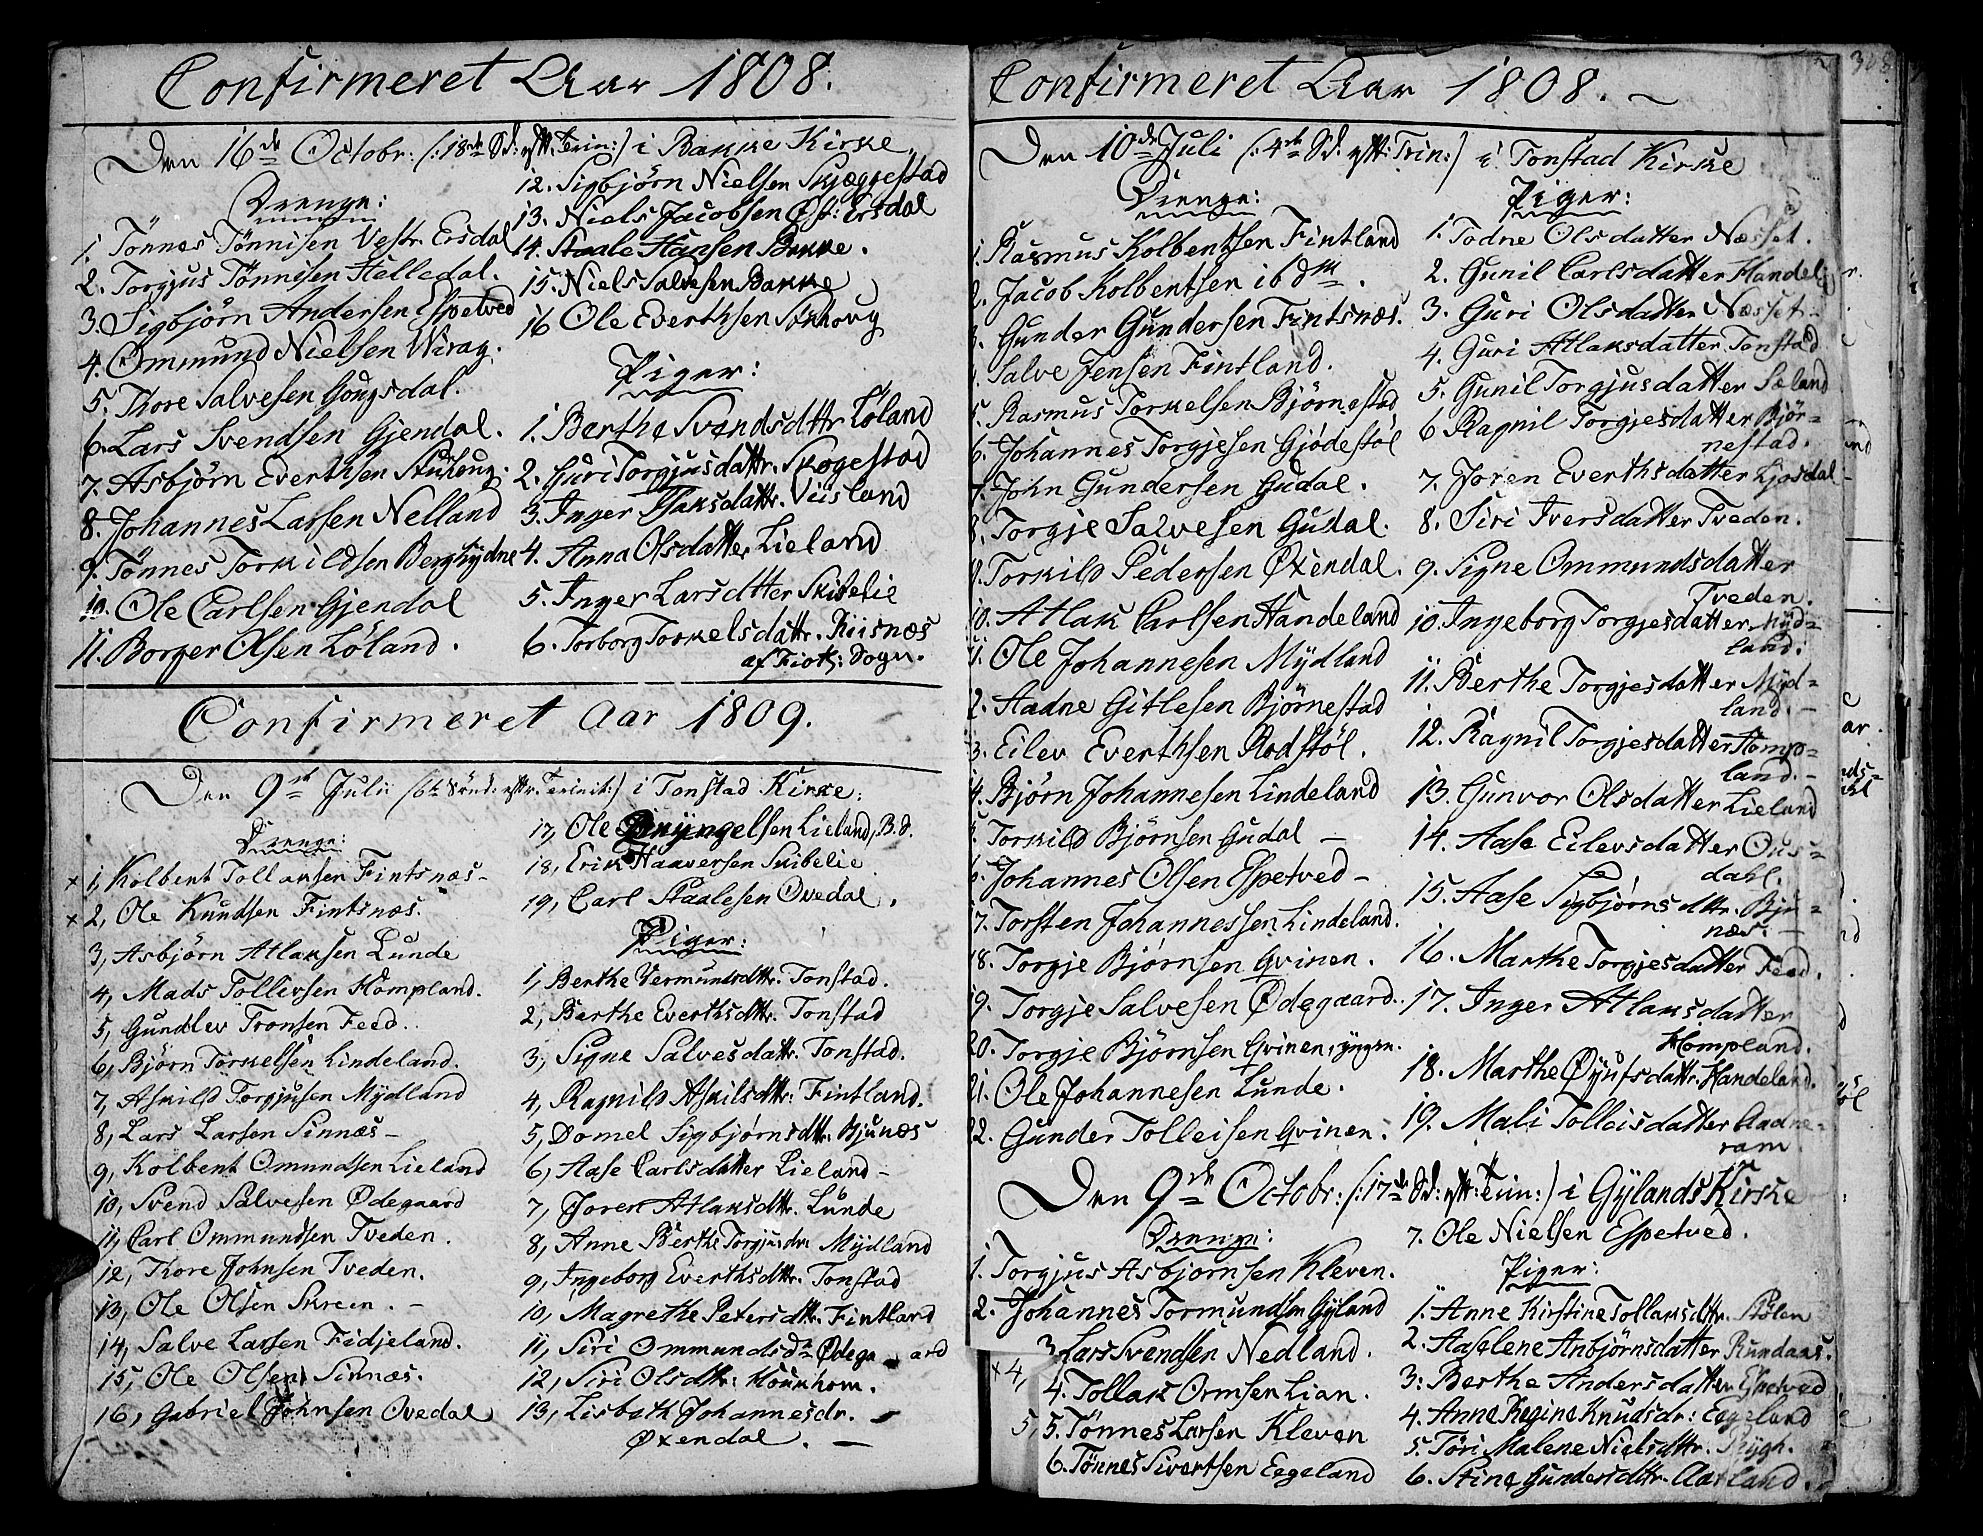 Confirmeret Aar 1808.
Den 16de Octobr: (:18de Sd: eftr. Trin:) i Bakke Kirke
Drenge:
1. Tönnes Tönnisen Vestr. Ersdal
2. Torgjus Tönnisen Helledal.
3. Sigbjörn Andersen Espetved
4. Ommund Nielsen Wirag.
5. Thore Salvesen Gougsdal.
6. Lars Svendsen Gjendal.
7. Asbjörn Everthsen
8. Johannes Larsen Nelland
9. Tönnes Torkildsen Berghydne
10. Ole Carlsen Gjendal
11. Borger Olsen Löland.
12. Sigbjörn Nielsen Skjeggestad
13. Niels Jacobsen Øst: Ersdal
14. Staale Hansen Bakke.
15. Niels Salvesen Bakke
16 Ole Everthsen
Piger:
1. Berthe Svendsdttr Löland
2. Guri Torgjusdattr. Skogestad
3. Inger Isaksdattr. Viisland
4. Anna Olsdatter Lieland
5. Inger Larsdtter Skibelie
6. Torborg Torkelsdattr. Riisnæs
af Fiotl: Sogn.
Confirmeret Aar 1809.
Den 9de Julii (6te Sönd: eftr. Trinit:) i Tonstad Kirke:
Drenge:
x 1, Kolbent Tollaksen Fintsnæs-
x 2, Ole Knudsen Fintsnæs.
3, Asbjörn Atlaksen Lunde
4, Mads Tollevsen Hompland.
5, Gundlev Tronsen Feed.
6, Björn Torkelsen Lindeland.
7, Askild Torgjusen Mÿdland
8, Lars Larsen Sinnæs-
9, Kolbent Omundsen Lieland
10, Svend Salvesen Ødegaard
11, Carl Ommundsen Tveden.
12, Thore Johnsen Tveden.
13, Ole Olsen Skreen. -
14, Salve Larsen Fidjeland.
15, Ole Olsen Sinnæs.
16, Gabriel Johnsen Ovedal
17, Ole Brÿngelsen Lieland, B.S.
18, Erik Haaversen Skibelie
19, Carl Staalesen Ovedal.
Piger:
1, Berthe Vermundsdttr. Tonstad.
2, Berthe Everthsdttr. Tonstad
3, Signe Salvesdattr. Tonstad.
4, Ragnild Askilsdttr: Fintland.
5, Domel Sigbjörnsdttr. Bjunæs
6, Aase Carlsdatter Lieland-
7, Joren Atlaksdttr. Lunde
8, Anne Berthe Torgjusdr. Mÿdland
9, Ingeborg Everthsdttr. Tonstad
10, Magrethe Petersdttr. Fintland
11, Siri Ommundsdr Ødegaard
12, Siri Olsdttr: Hounhom.
13, Lisbeth Johannesdr. -
Øxendal. -
Confirmeret Aar 1808. -
Den 10de Juli (:4de Sd. eftr: Trin:) i Tonstad Kirke
Drenge:
1. Rasmus Kolbentsen Fintland
2. Jacob Kolbentsen ibdm.
3. Gunder Gundersen Fintsnæs.
Salve Jensen Fintland.
5. Rasmus Torkelsen Björnestad
6. Johannes Torgjesen Gjödestöl
7. John Gundersen Gudal.
8. Torgje Salvesen Gudal.
9. Torkild Pedersen Øxendal.
10. Atlak Carlsen Handeland
11. Ole Johannesen Mÿdland
2. Aadne Gitlesen Björnestad
3. Eilev Everthsen Rodstöl.
4. Björn Johannesen Lindeland
5. Torkild Björnsen Gudal -
6. Johannes Olsen Espetved -
17. Torsten Johannessen Lindeland.
18. Torgje Björnsen Qvinen.
19. Torgje Salvesen Ødegaard.
20. Torgje Björnsen Qvinen, ÿngrn.
21. Ole Johannesen Lunde.
22. Gunder Tolleisen Qvinen.
Piger:
1. Todne Olsdatter Næsset.
2. Gunil Carlsdatter Handel
3. Guri Olsdatter Næsset-
4. Guri Atlaksdatter Tonstad
5. Gunil Torgjusdatter Sæland
6 Ragnil Torgjesdatter Björ=
nestad.
7. Joren Everthsdatter Ljosdal
8. Siri Iversdatter Tveden.
9. Signe Ommundsdatter
Tveden.
10. Ingeborg Torgjesdatter Mÿd=
land.
11. Berthe Torgjesdatter Mÿd=
land. -
12. Ragnil Torgjesdatter Homp=
land. -
13. Gunvor Olsdatter Lieland
14. Aase Eilevsdatter Ous=
dahl.
15. Aase Sigbjörnsdttr. Bju=
næs. -
16. Marthe Torgjesdatter Feed.
17. Inger Atlaksdatter
Hompland.
18. Marthe Øÿufsdattr. Handeland.
19. Mali Tolleisdatter Aadne=
ram.
Den 9de Octobr: (:17de Sd: eftr: Trin:) i Gÿlands Kirke
Drenge:
1. Torgjus Asbjornsen Kleven.
2. Johannes Tormundsen Gÿland
3 Lars Svendsen Nedland.
4. Tollak Ormsen Lian.
5. Tönnes Larsen Kleven
6. Tönnes Sivertsen Eegeland
7. Ole Nielsen Espetved.
Piger:
1. Anne Kirstine Tollaksdttr. Stölen
2. Aaselene Anbjörnsdatter Rundaas.
3: Berthe Andersdatter Espetved
4. Anne Regine Knudsdr: Eegeland
5. Töri Malene Nielsdttr. Rÿgh.
6. Stine Gundersdttr. Aatland.